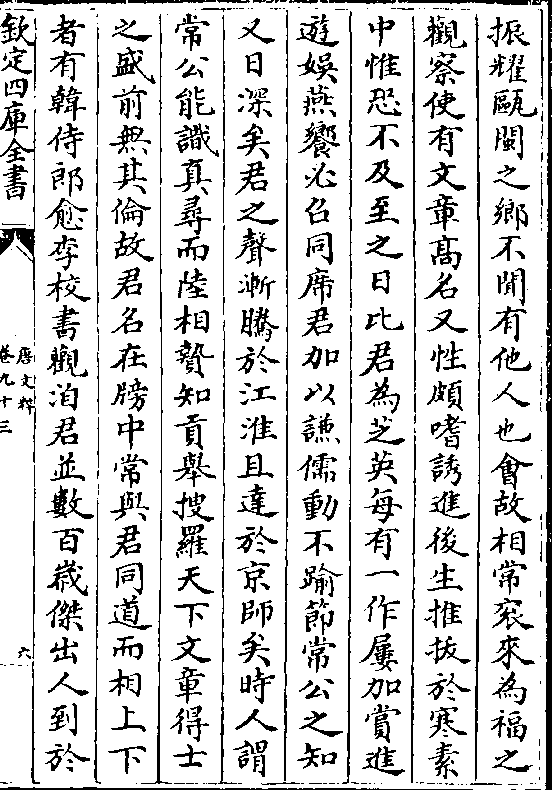 振耀甌閩之鄉不聞有他人也會故相常衮來為福之
觀察使有文章高名又性頗嗜誘進後生推拔於寒素
中惟恐不及至之日比君為芝英每有一作屢加賞進
遊娛燕饗必召同席君加以謙儒動不踰節常公之知
又日深矣君之聲漸騰於江淮且達於京師矣時人謂
常公能識真尋而陸相贄知貢舉搜羅天下文章得士
之盛前無其倫故君名在牓中常與君同道而相上下
者有韓侍郎愈李校書觀洎君並數百嵗傑出人到於
欽定四庫全書
唐文粹
卷九十三
六